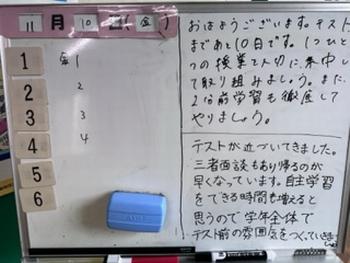 11 月 10 日 (金)
1 金1
2 2
3 3
4 4
5
6
おはようございます。テスト
まであと10日です。1つひと
つの授業を大切に、集中し
て取り組みましょう。また、
2分前学習も徹底して
やりましょう。
テストが近づいてきました。
三者面談もあり帰るのが
早くなっています。自主学習
をできる時間も増えると
思うので学年全体で
テスト前の雰囲気をつくっていきましょう